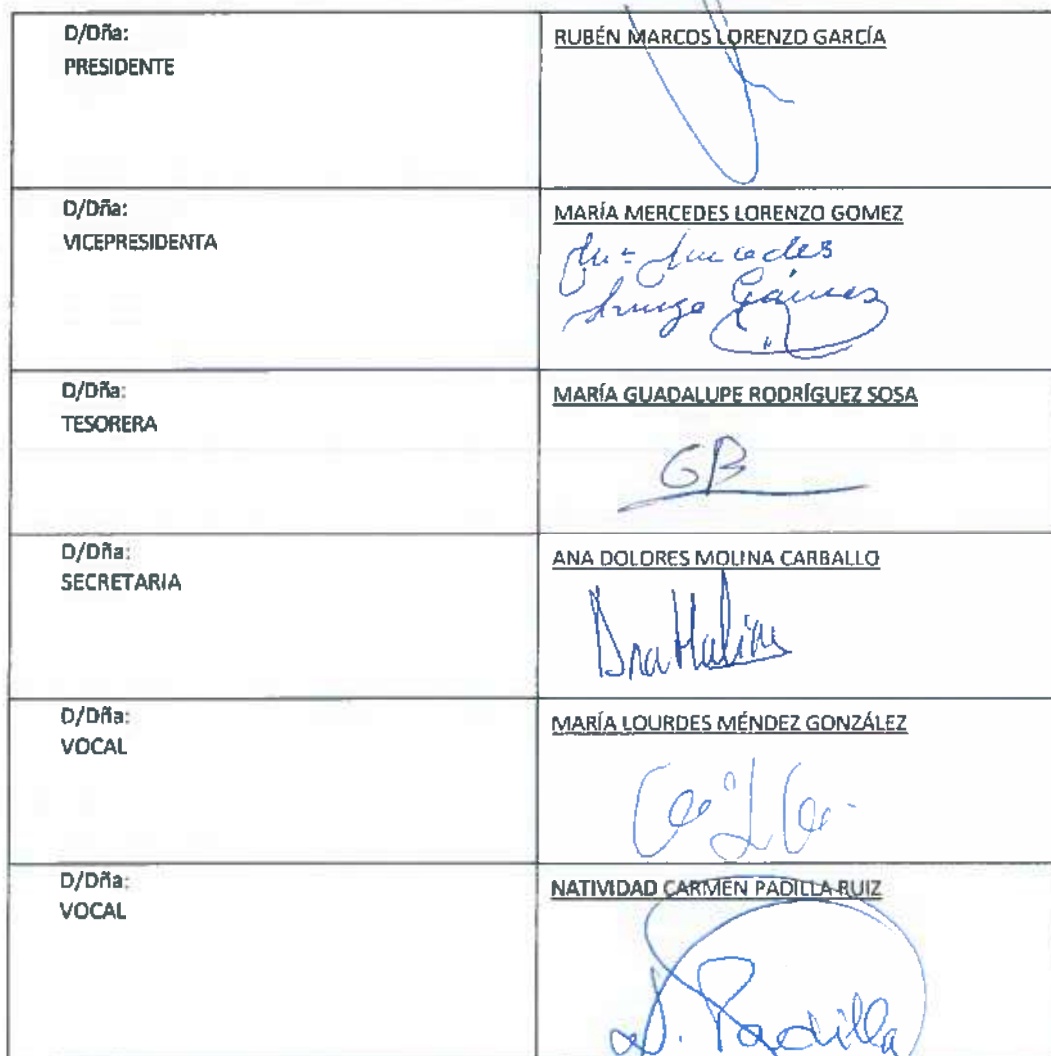 D/Dña:
PRESIDENTE
RUBÉN MARCOS LORENZO GARCÍA
D/Dña:
VICEPRESIDENTA
MARÍA MERCEDES LORENZO GOMEZ
D/Dña:
TESORERA
MARÍA GUADALUPE RODRÍGUEZ SOSA
GB
D/Dña:
SECRETARIA
ANA DOLORES MOLINA CARBALLO
D/Dña:
VOCAL
MARÍA LOURDES MÉNDEZ GONZÁLEZ
D/Dña:
VOCAL
NATIVIDAD CARMEN PADILLA RUIZ
N. Padilla